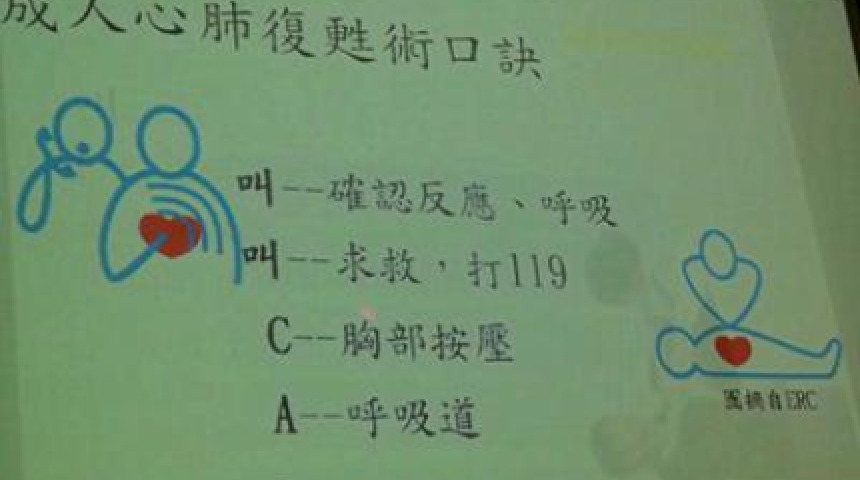 成人心肺復甦術口訣
叫--確認反應、呼吸
叫--求救，打119
C--胸部按壓
A--呼吸道
圖摘自ERC